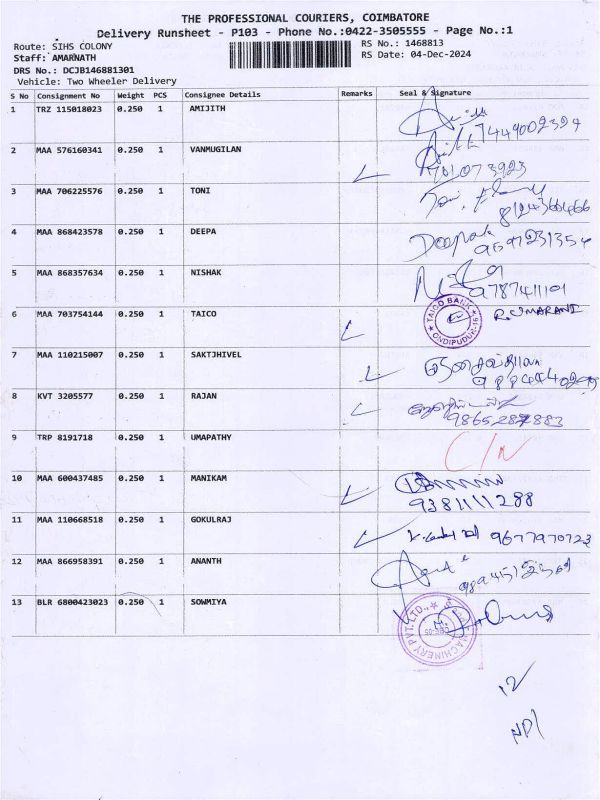 THE PROFESSIONAL COURIERS, COIMBATORE
Delivery Runsheet - P103 - Phone No.:0422-3505555 - Page No.:1
Route: SIHS COLONY RS No.: 1468813
Staff: AMARNATH RS Date: 04-Dec-2024
DRS No.: DCJB146881301
Vehicle: Two Wheeler Delivery
S No Consignment No Weight PCS Consignee Details Remarks Seal & Signature
1 TRZ 115018023 0.250 1 AMIJITH
7449002394
2 MAA 576160341 0.250 1 VANMUGILAN
701073923
3 MAA 706225576 0.250 1 TONI Toni
8124366466
4 MAA 868423578 0.250 1 DEEPA Deepak
9597231354
5 MAA 868357634 0.250 1 NISHAK
9787411101
6 MAA 703754144 0.250 1 TAICO TAICO BANK ONDIPUDUR-16 R. UMARANI
7 MAA 110215007 0.250 1 SAKTJHIVEL
8 KVT 3205577 0.250 1 RAJAN
9865287883
9 TRP 8191718 0.250 1 UMAPATHY C/N
10 MAA 600437485 0.250 1 MANIKAM
9381111288
11 MAA 110668518 0.250 1 GOKULRAJ 9677970723
12 MAA 866958391 0.250 1 ANANTH
13 BLR 6800423023 0.250 1 SOWMIYA
MACHINERY PVT. LTD.,
12